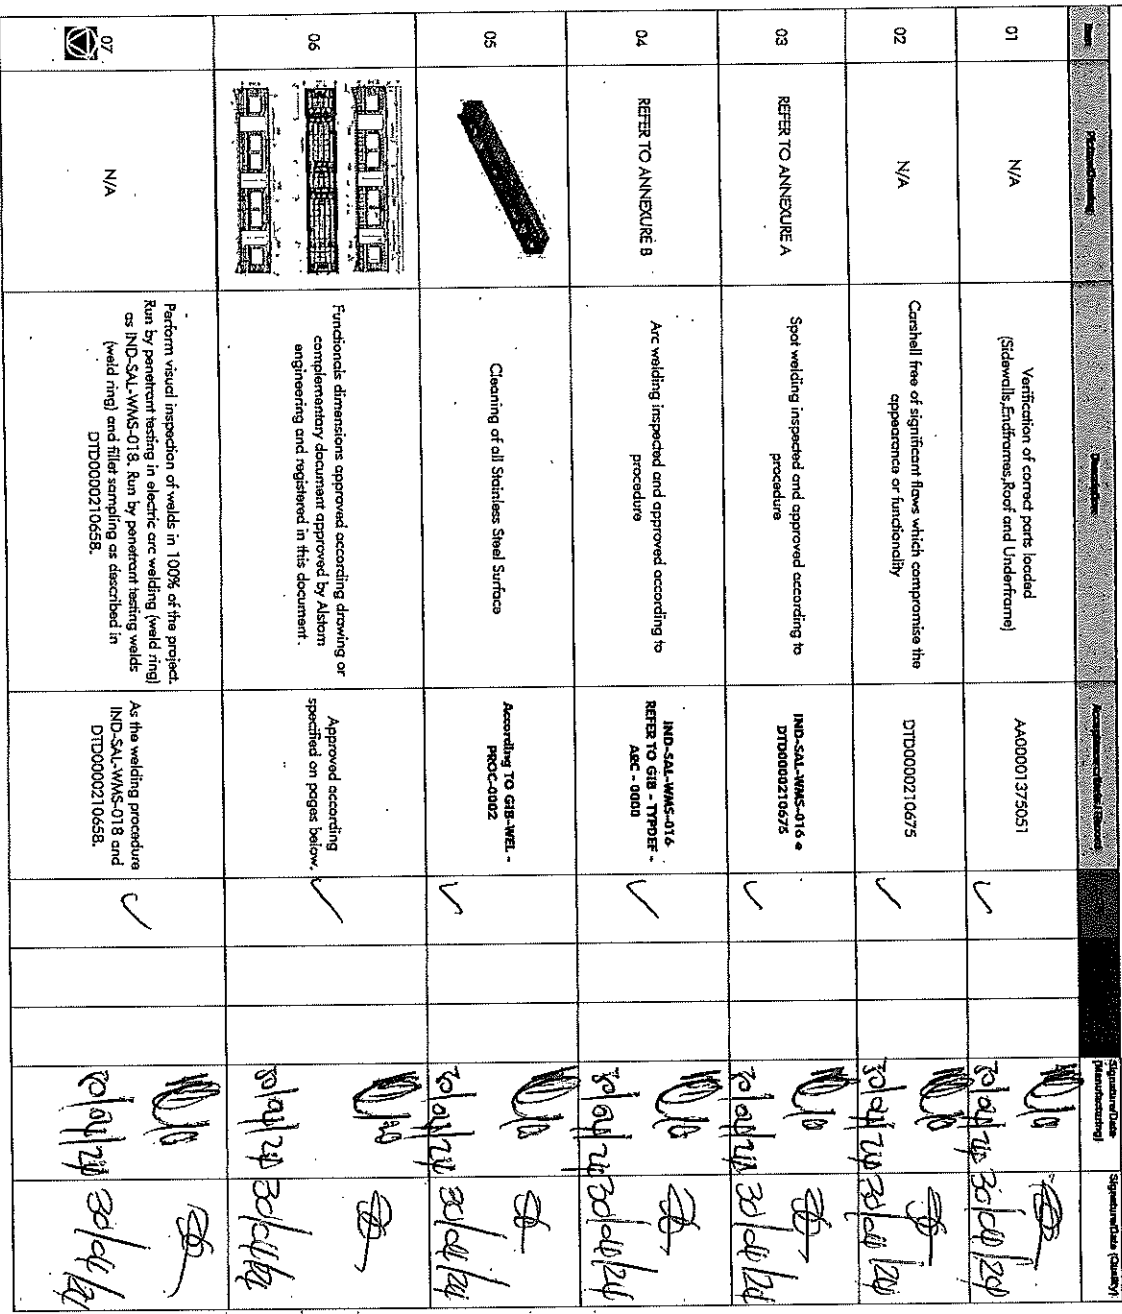 Description
Signature/Date (Manufacturing)
Signature/Date (Quality)
01
N/A
Verification of correct parts loaded
(Sidewalls,Endframes,Roof and Underframe)
AA00001375051
✓
30/04/24
30/04/24
02
N/A
Carshell free of significant flaws which compromise the
appearance or functionality
DTD0000210675
✓
30/04/24
30/04/24
03
REFER TO ANNEXURE A
Spot welding inspected and approved according to
procedure
IND-SAL-WMS-016 e
DTD0000210675
✓
30/04/24
30/04/24
04
REFER TO ANNEXURE B
Arc welding inspected and approved according to
procedure
IND-SAL-WMS-016
REFER TO GIB - TYPDEF -
ARC - 0000
✓
30/04/24
30/04/24
05
Cleaning of all Stainless Steel Surface
According TO GIB-WEL -
PROC-0002
✓
30/04/24
30/04/24
06
Functionals dimensions approved according drawing or
complementary document approved by Alstom
engineering and registered in this document.
Approved according
specified on pages below.
✓
30/04/24
30/04/24
07
N/A
Perform visual inspection of welds in 100% of the project.
Run by penetrant testing in electric arc welding (weld ring)
as IND-SAL-WMS-018. Run by penetrant testing welds
(weld ring) and fillet sampling as described in
DTD0000210658.
As the welding procedure
IND-SAL-WMS-018 and
DTD0000210658.
✓
30/04/24
30/04/24